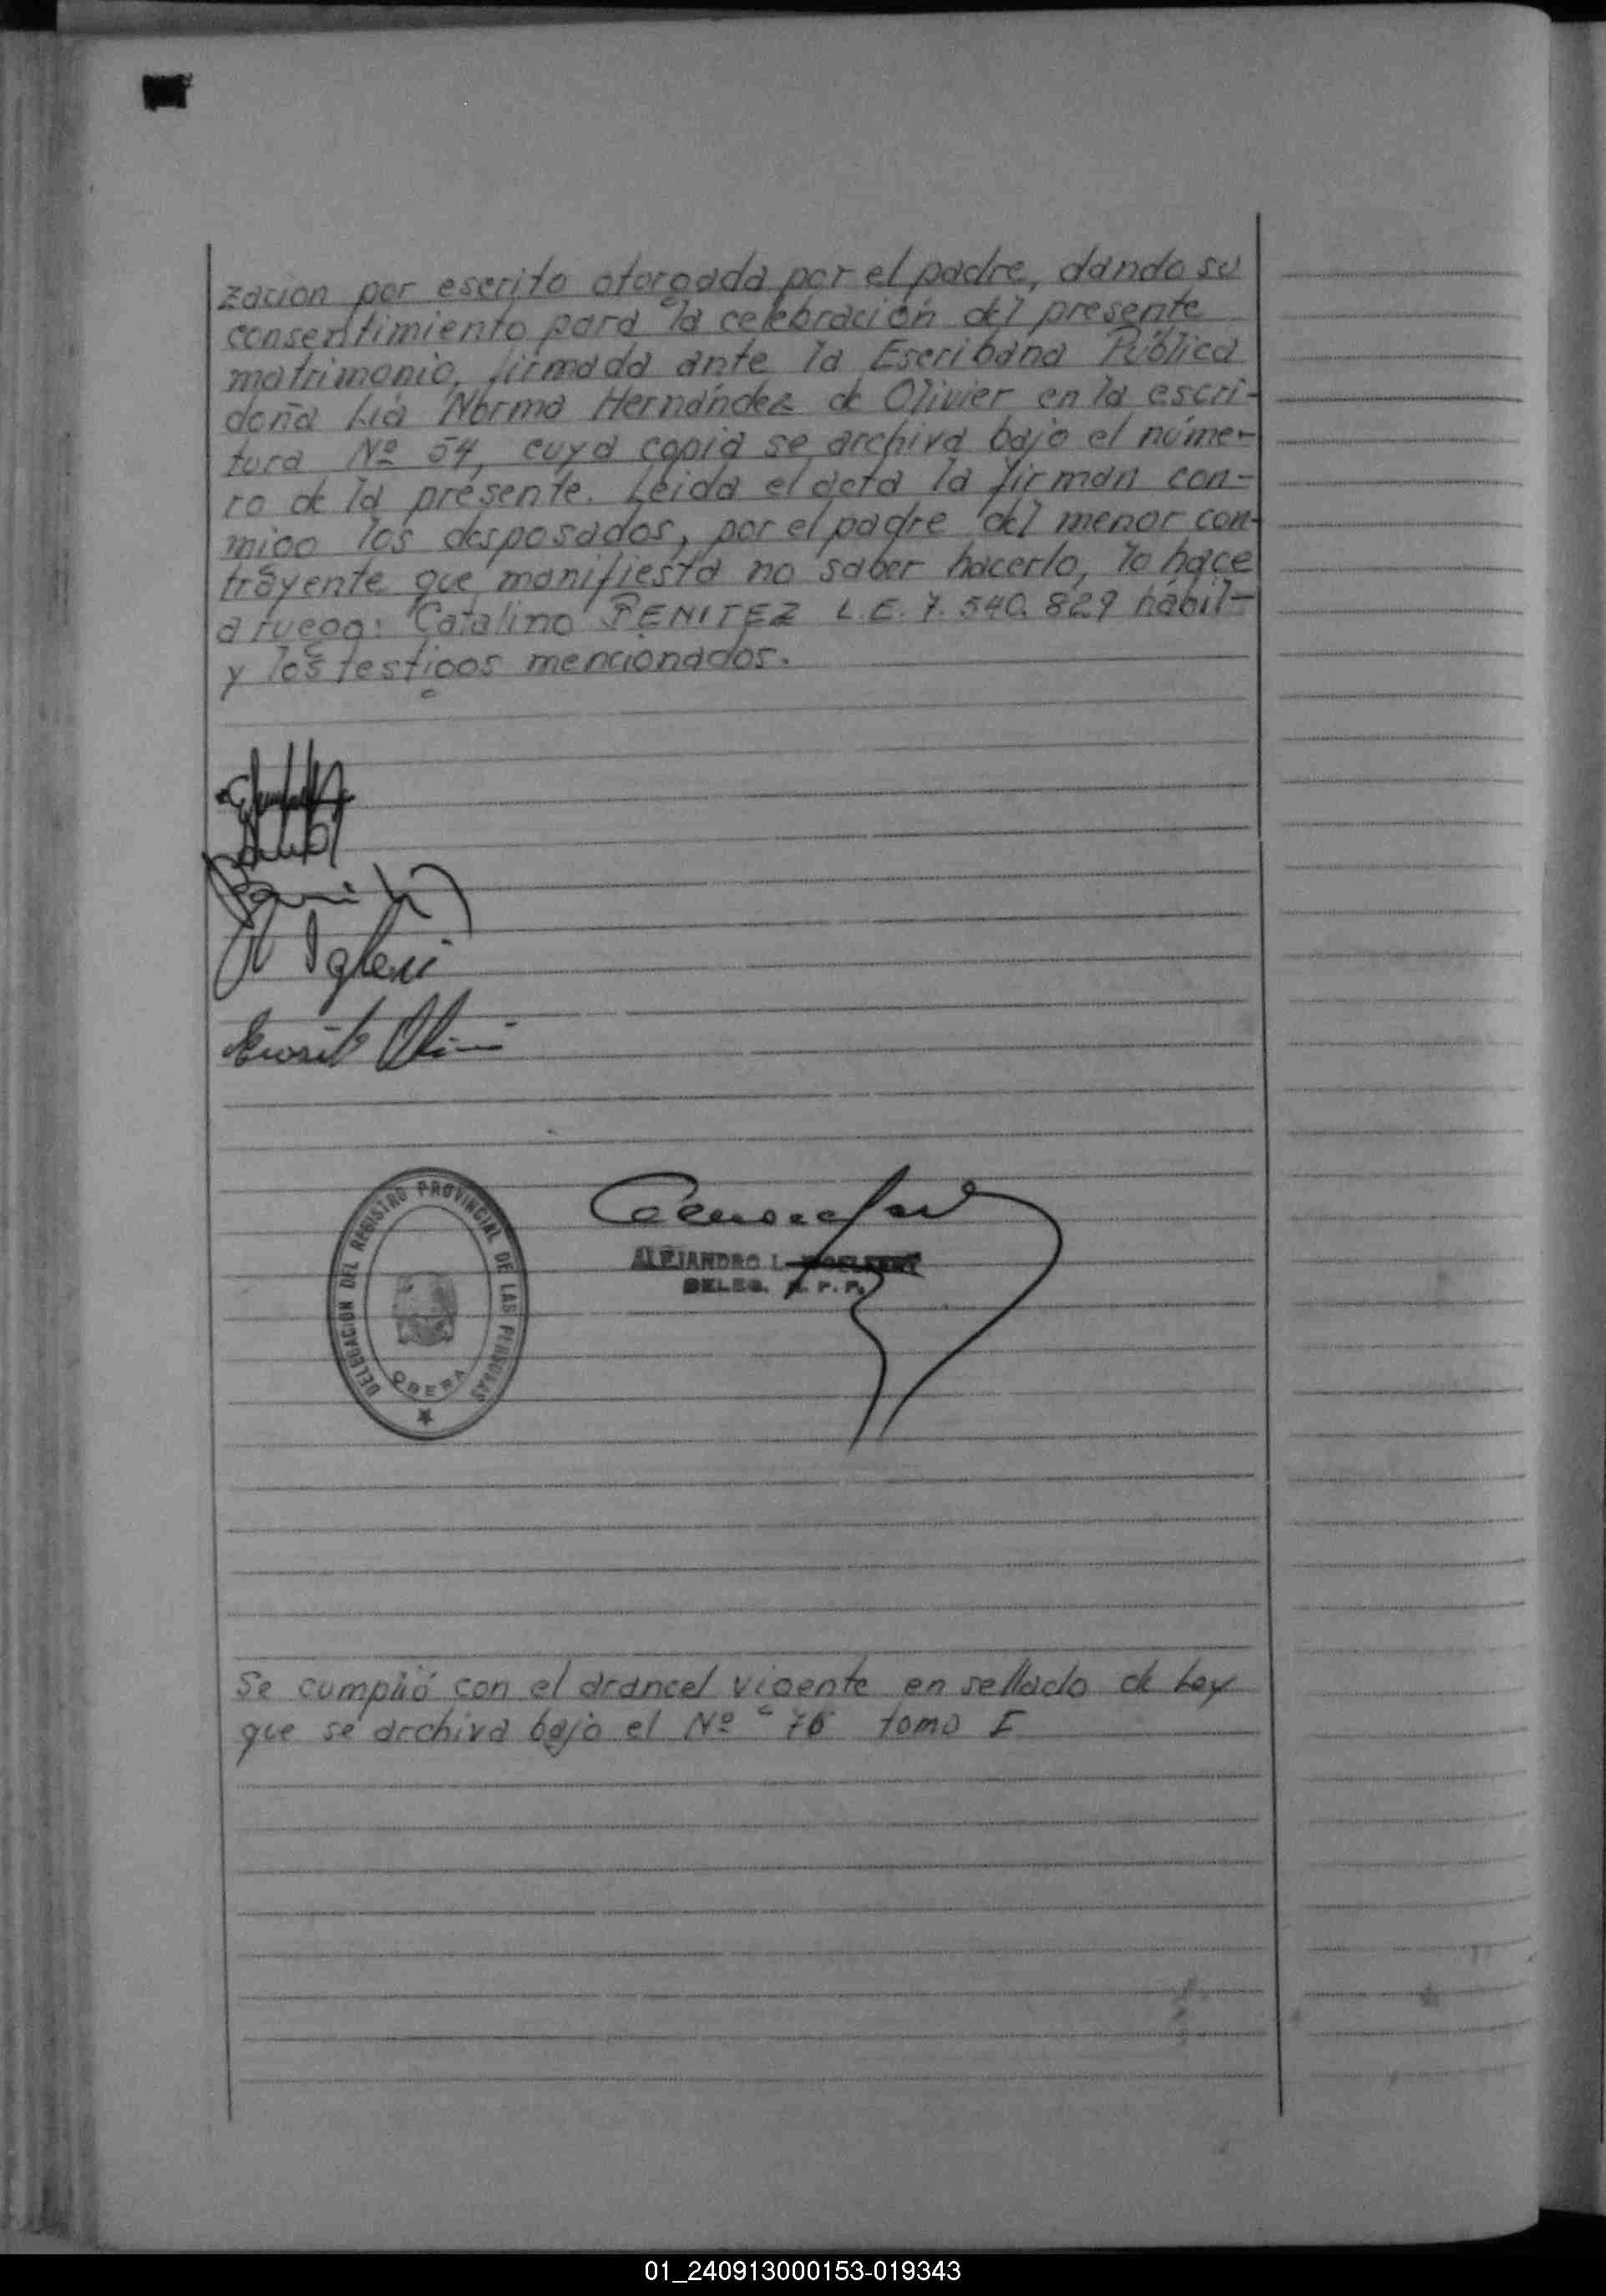 zación por escrito otorgada por el padre, dando su
consentimiento para la celebración del presente
matrimonio, firmada ante la Escribana Pública
doña Lía Norma Hernández de Olivier en la escri-
tura Nº 54, cuya copia se archiva bajo el núme-
ro de la presente. Leida el acta la firman con-
migo los desposados, por el padre del menor con-
trayente que manifiesta no saber hacerlo, lo hace
a ruego: Catalino BENITEZ L.E. 7.540.829 hábil-
y los testigos mencionados.
Iglesi
DELEGACIÓN DEL REGISTRO PROVINCIAL DE LAS PERSONAS
OBERA
ALEJANDRO L.
DELEG. R. P. P.
Se cumplió con el arancel vigente en sellado de Ley
que se archiva bajo el Nº 76 tomo I
01_240913000153-019343